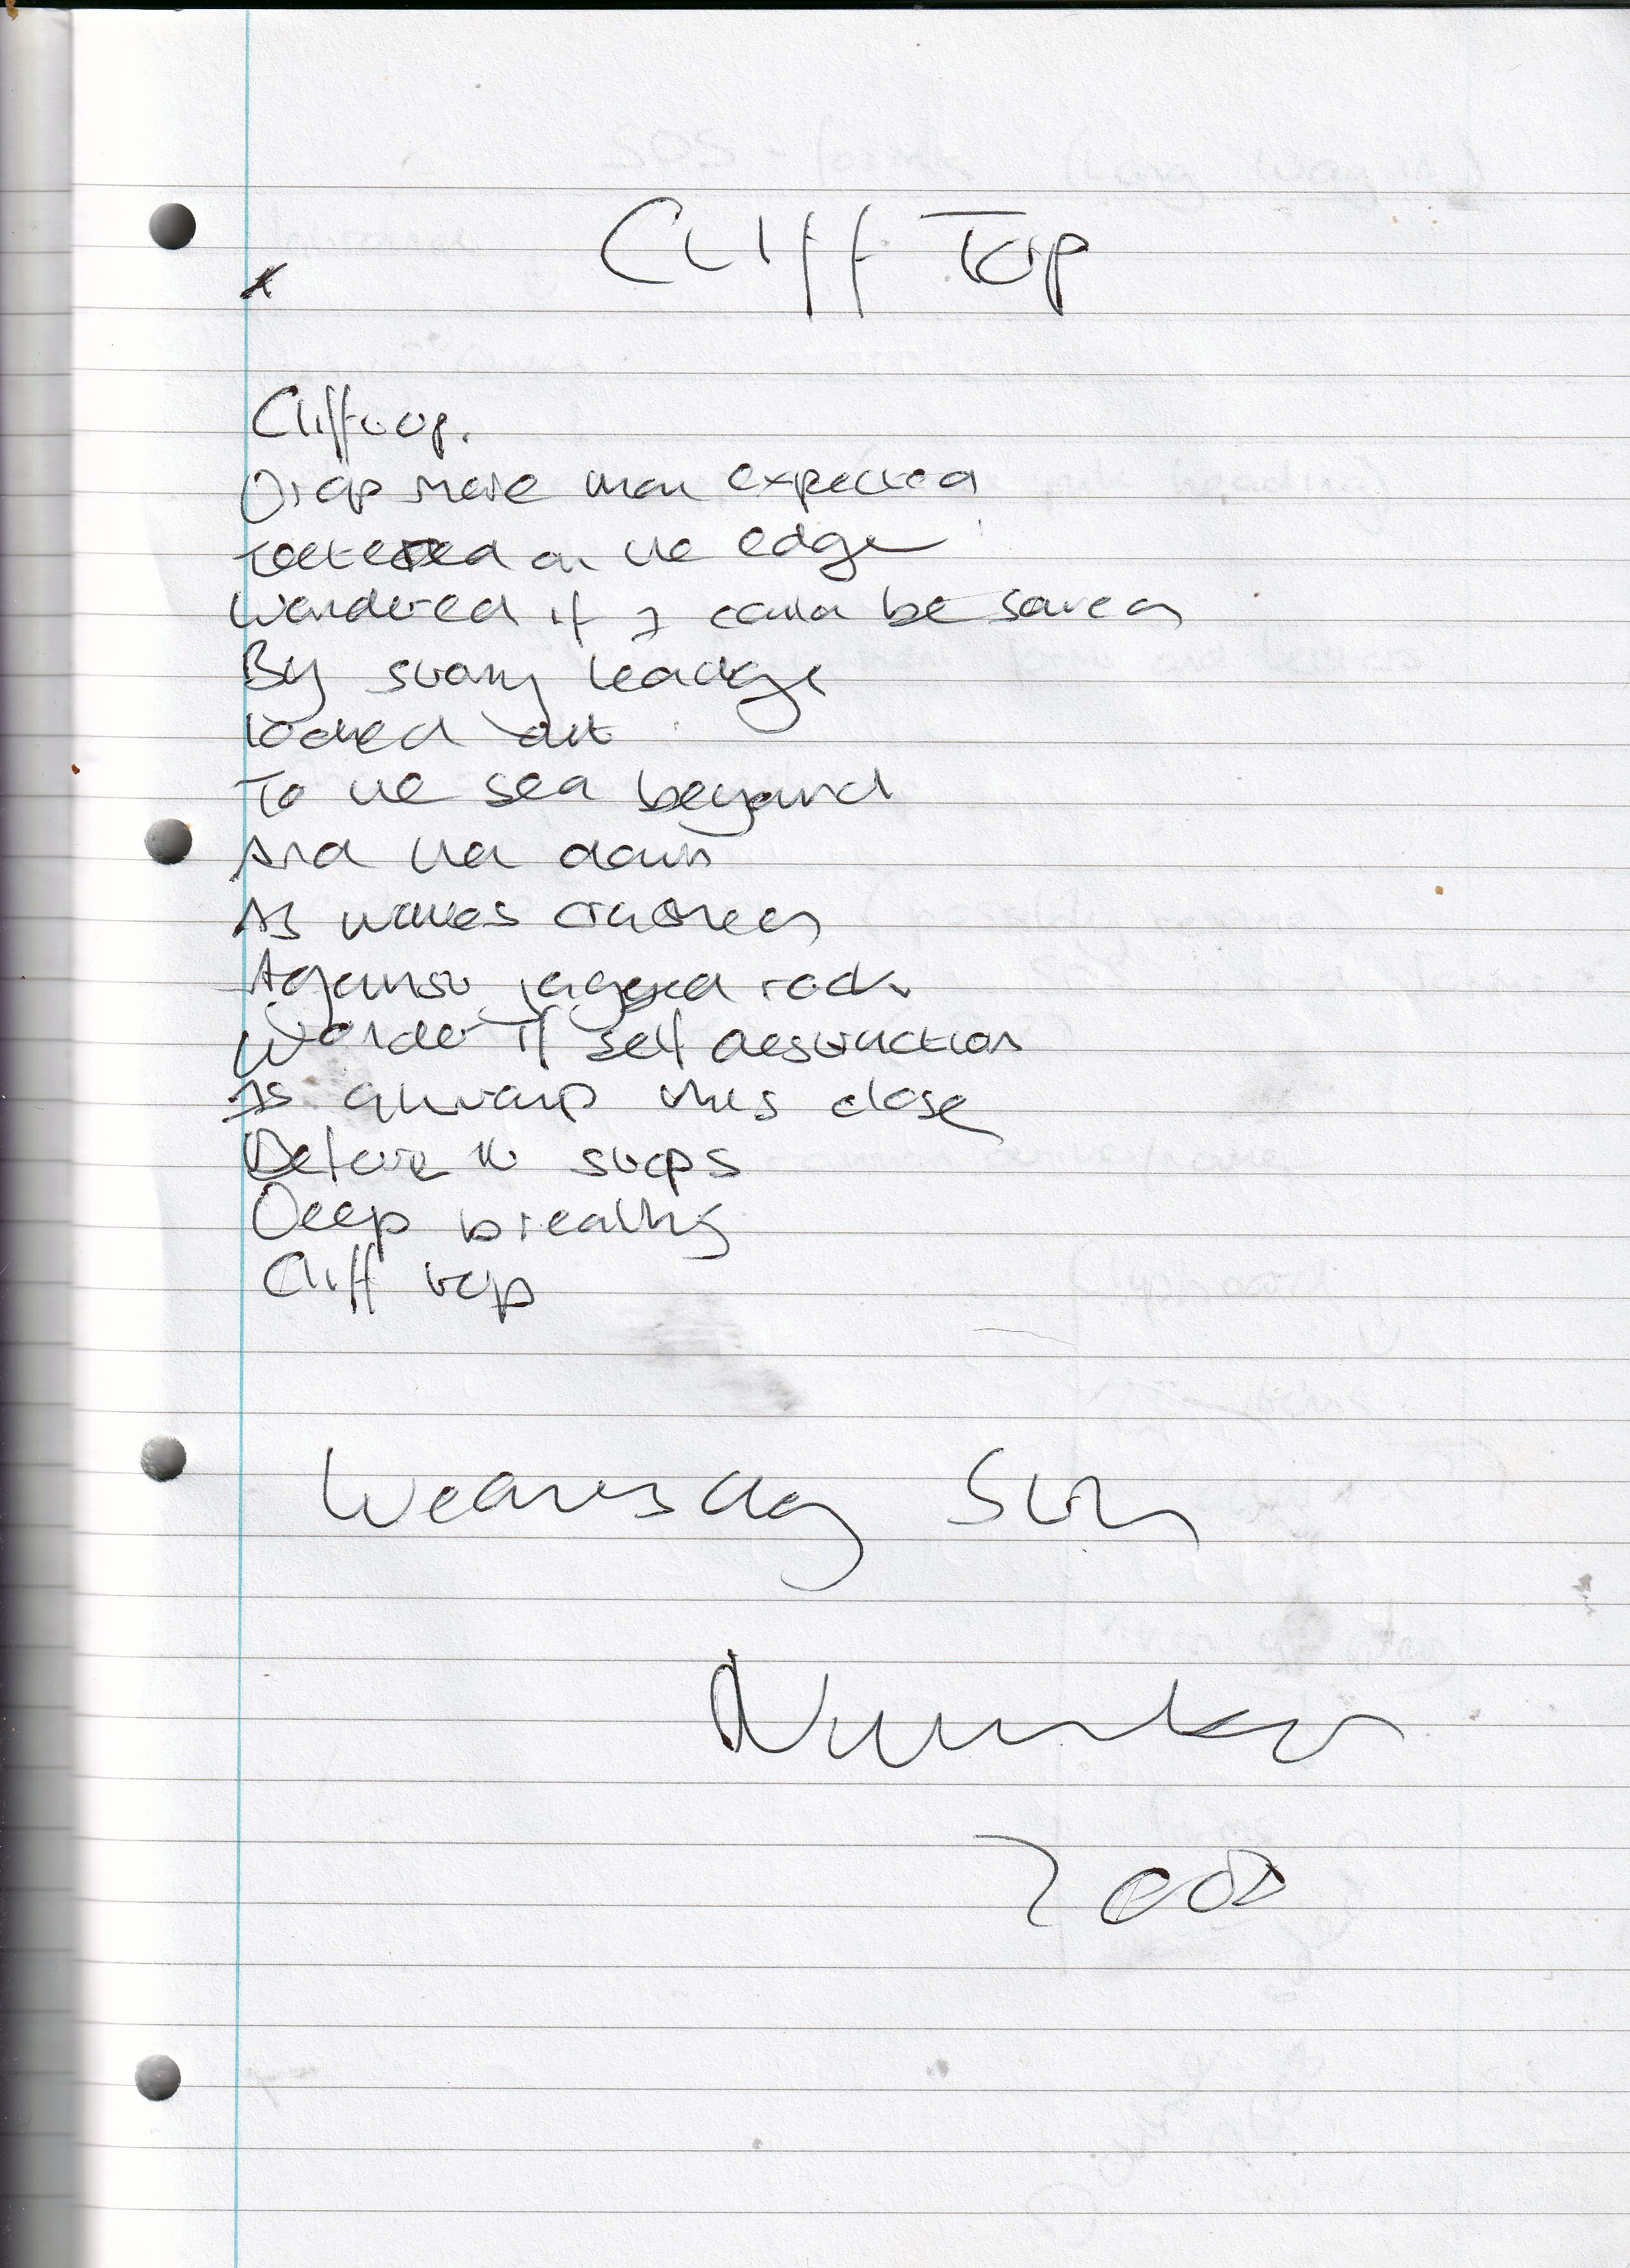 Cliff Top
x
Clifftop.
Drop more than expected
Teetered on the edge
Wondered if I could be saved
By strong leadge
looked out
To the sea beyond
And then down
As waves crashed
Against jagged rock
Wonder if self destruction
Is always this close
Before it stops
Deep breaths
Cliff top
Wednesday 5th
November
2008